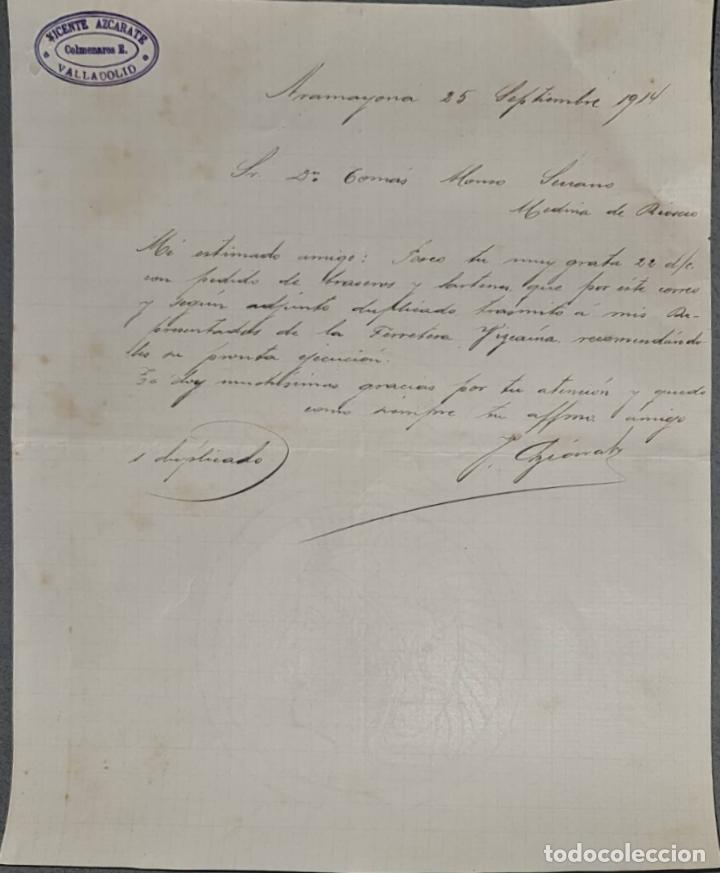 VICENTE AZCARATE
Colmenares E.
VALLADOLID
Aramayona 25 Septiembre 1914
Sr. Dn. Tomás Alonso Serrano
Medina de Rioseco
Mi estimado amigo: Poseo tu muy grata 22 d/c.
con pedido de braseros y sartenes, que por este correo
y según adjunto duplicado trasmito á mis Re-
presentados de la Ferretera Vizcaína, recomendándo-
les su pronta ejecución.
Te doy muchísimas gracias por tu atención y quedo
como siempre tu affmo. amigo
V. Azcárate
1 duplicado
todocoleccion